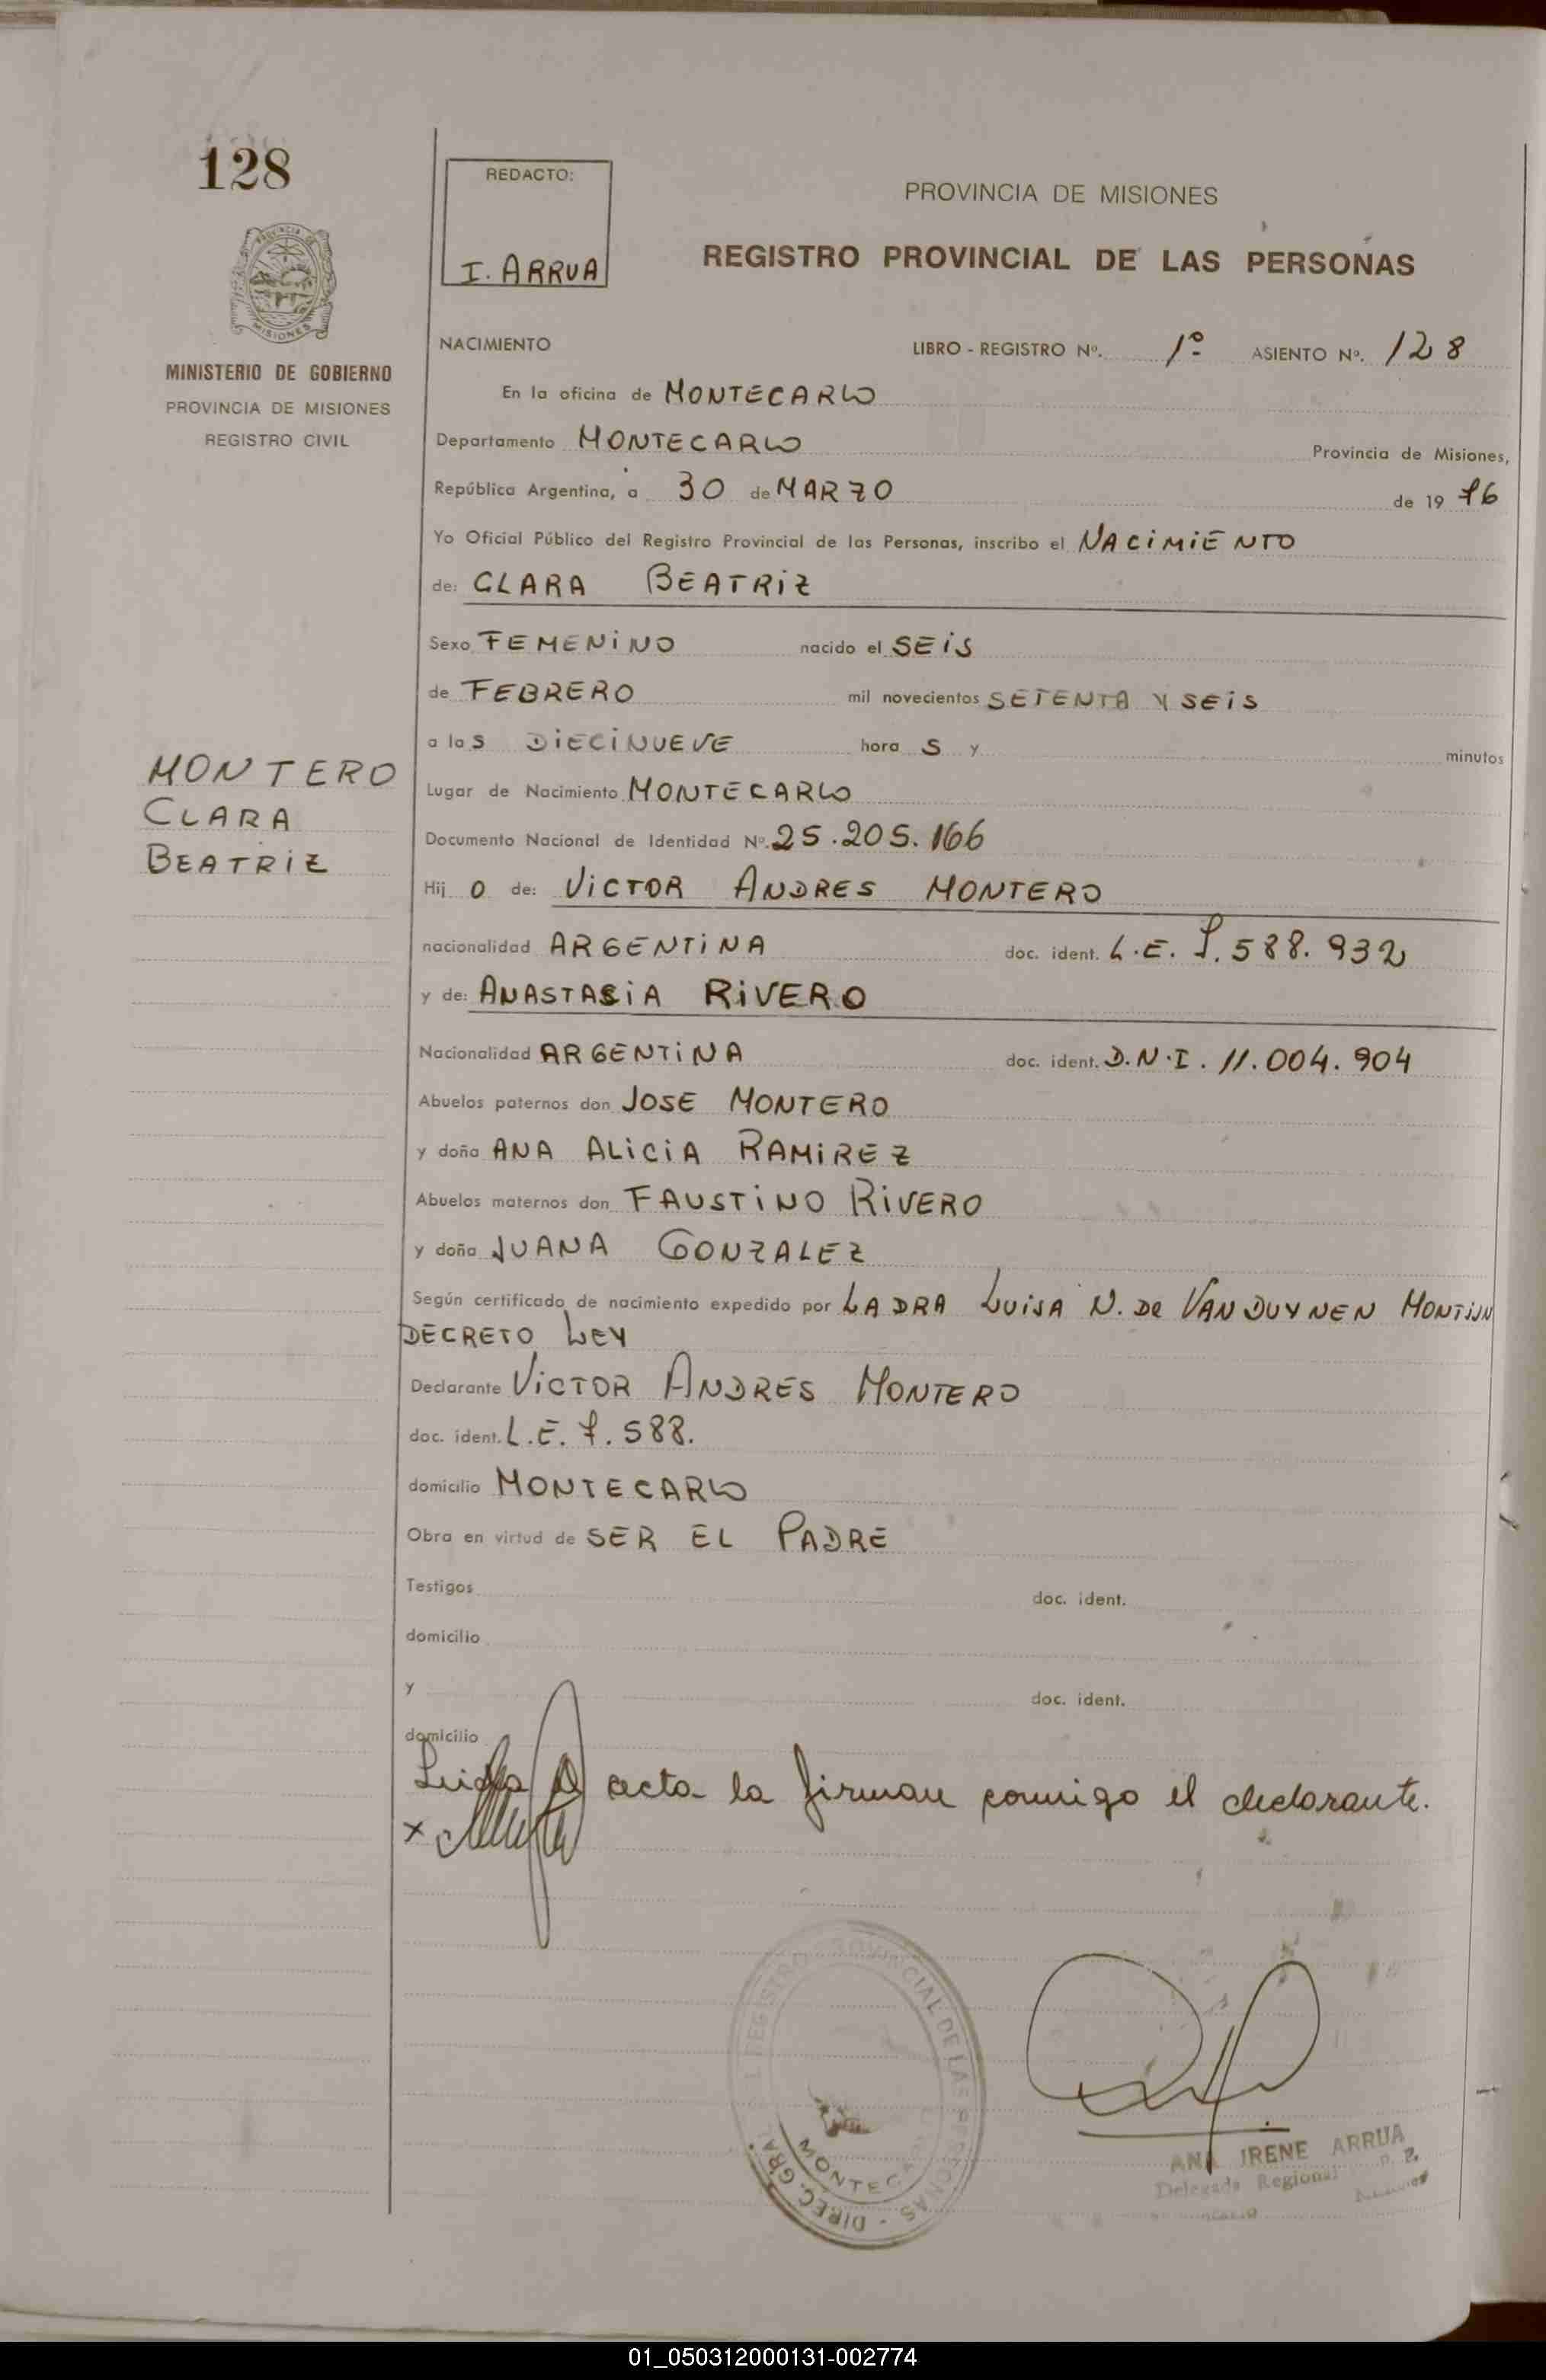 128
REDACTO:
I. ARRUA
PROVINCIA DE MISIONES
REGISTRO PROVINCIAL DE LAS PERSONAS
PROVINCIA DE
MISIONES
MINISTERIO DE GOBIERNO
PROVINCIA DE MISIONES
REGISTRO CIVIL
NACIMIENTO LIBRO - REGISTRO Nº. 1º ASIENTO Nº. 128
En la oficina de MONTECARLO
Departamento MONTECARLO Provincia de Misiones,
República Argentina, a 30 de MARZO de 19 76
Yo Oficial Público del Registro Provincial de las Personas, inscribo el NACIMIENTO
de: CLARA BEATRIZ
Sexo FEMENINO nacido el SEIS
de FEBRERO mil novecientos SETENTA Y SEIS
a las DIECINUEVE hora S y minutos
MONTERO
CLARA
BEATRIZ
Lugar de Nacimiento MONTECARLO
Documento Nacional de Identidad Nº. 25.205.166
Hij O de: VICTOR ANDRES MONTERO
nacionalidad ARGENTINA doc. ident. L.E. 7.588.932
y de: ANASTASIA RIVERO
Nacionalidad ARGENTINA doc. ident. D.N.I. 11.004.904
Abuelos paternos don JOSE MONTERO
y doña ANA ALICIA RAMIREZ
Abuelos maternos don FAUSTINO RIVERO
y doña JUANA GONZALEZ
Según certificado de nacimiento expedido por LA DRA LUISA N. De VAN DUYNEN
DECRETO LEY
Declarante VICTOR ANDRES MONTERO
doc. ident. L.E. 7.588.
domicilio MONTECARLO
Obra en virtud de SER EL PADRE
Testigos doc. ident.
domicilio
y doc. ident.
domicilio
acta la firman conmigo el declarante.
x
DIREC. GRAL. REGISTRO PROVINCIAL DE LAS PERSONAS
ANA IRENE ARRUA
Delegada Regional
01_050312000131-002774